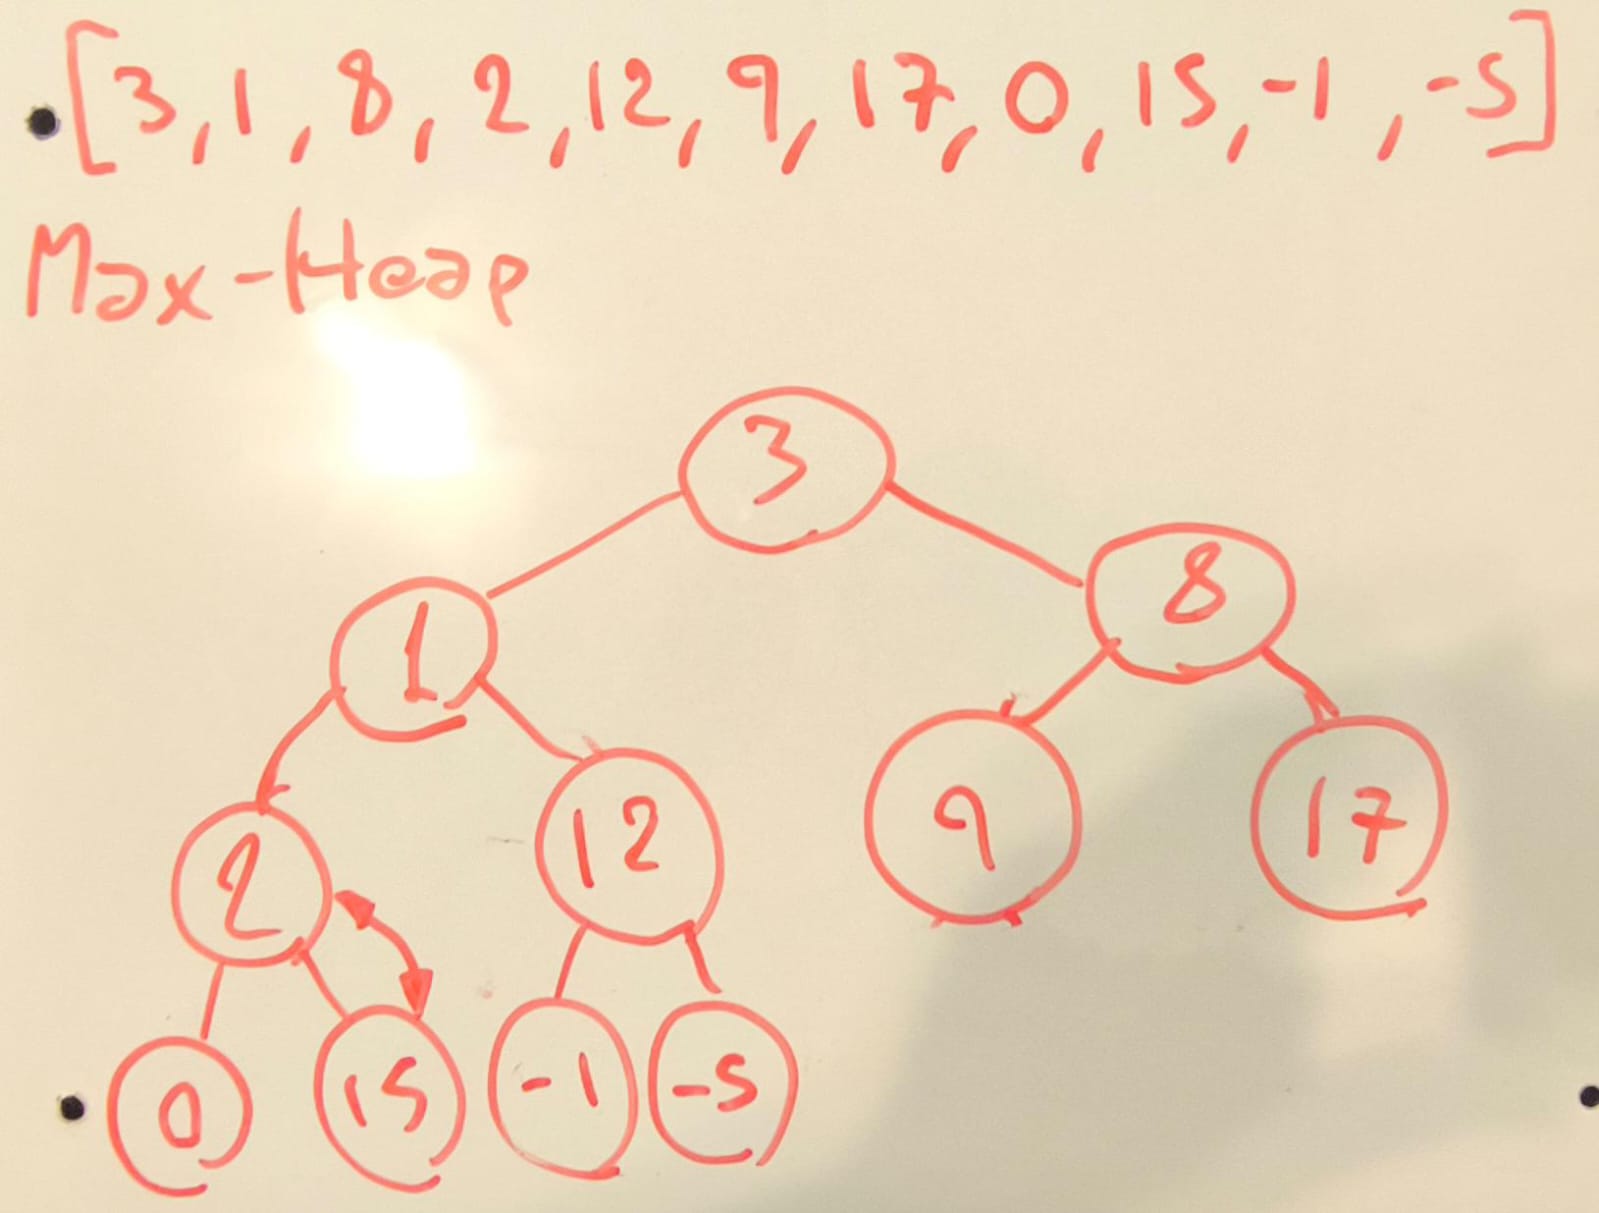 [3, 1, 8, 2, 12, 9, 17, 0, 15, -1, -5]
Max-Heap
3
1 8
2 12 9 17
0 15 -1 -5